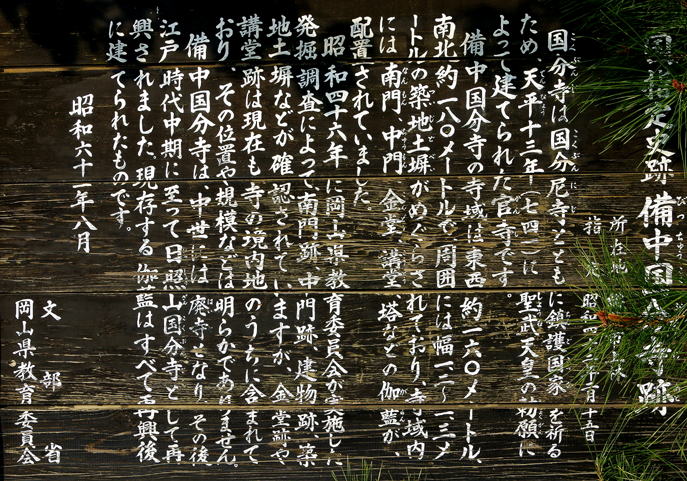 国指定史跡 備中国分寺跡
所在地
指定 昭和四 十二月十五日
国分寺は国分尼寺とともに鎮護国家を祈る
ため、天平十三年(七四一)に聖武天皇の勅願に
よって建てられた官寺です。
備中国分寺の寺域は東西約一六〇メートル、
南北約一八〇メートルで、周囲には幅一二〜一三メ
ートルの築地土塀がめぐらされており、寺域内
には南門、中門、金堂、講堂、塔などの伽藍が、
配置されていました
昭和四十六年に岡山県教育委員会が実施した
発掘調査によって南門跡、中門跡、建物跡、築
地土塀などが確認されていますが、金堂跡や
講堂跡は現在も寺の境内地のうちに含まれて
おり、その位置や規模などは明らかでありません。
備中国分寺は、中世には廃寺となり、その後
江戸時代中期に至って日照山国分寺として再
興されました。現存する伽藍はすべて再興後
に建てられたものです。
昭和六十一年八月
文部省
岡山県教育委員会